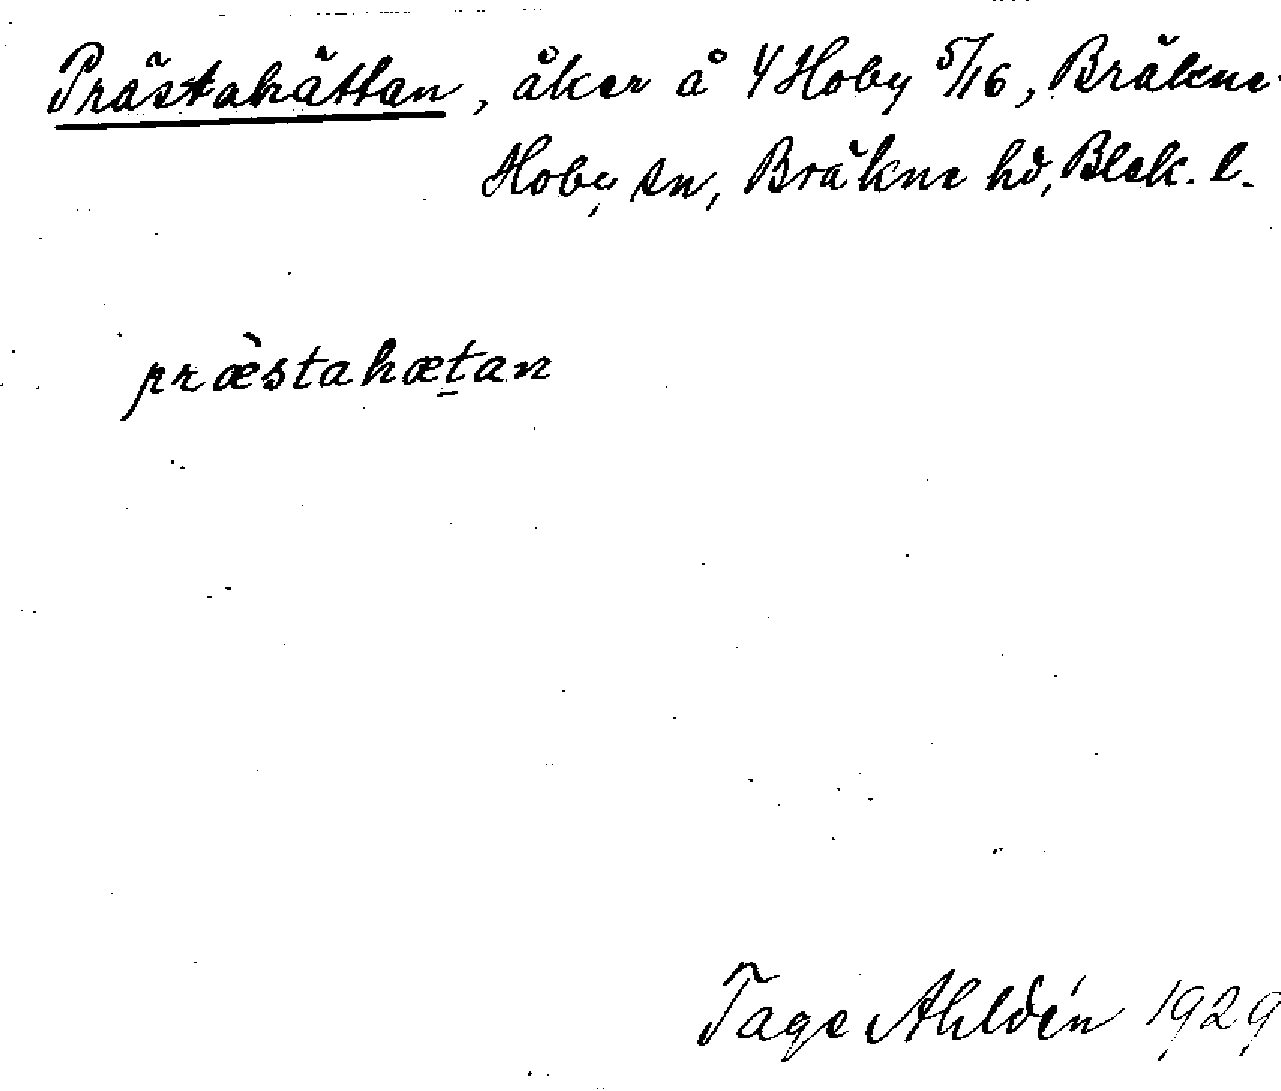 Prästahättan, åker å 4 Hoby 5/16, Bräkne-
Hoby sn, Bräkne hd, Blek. l.
præ̀stahæt̠an
Tage Ahldén 1929